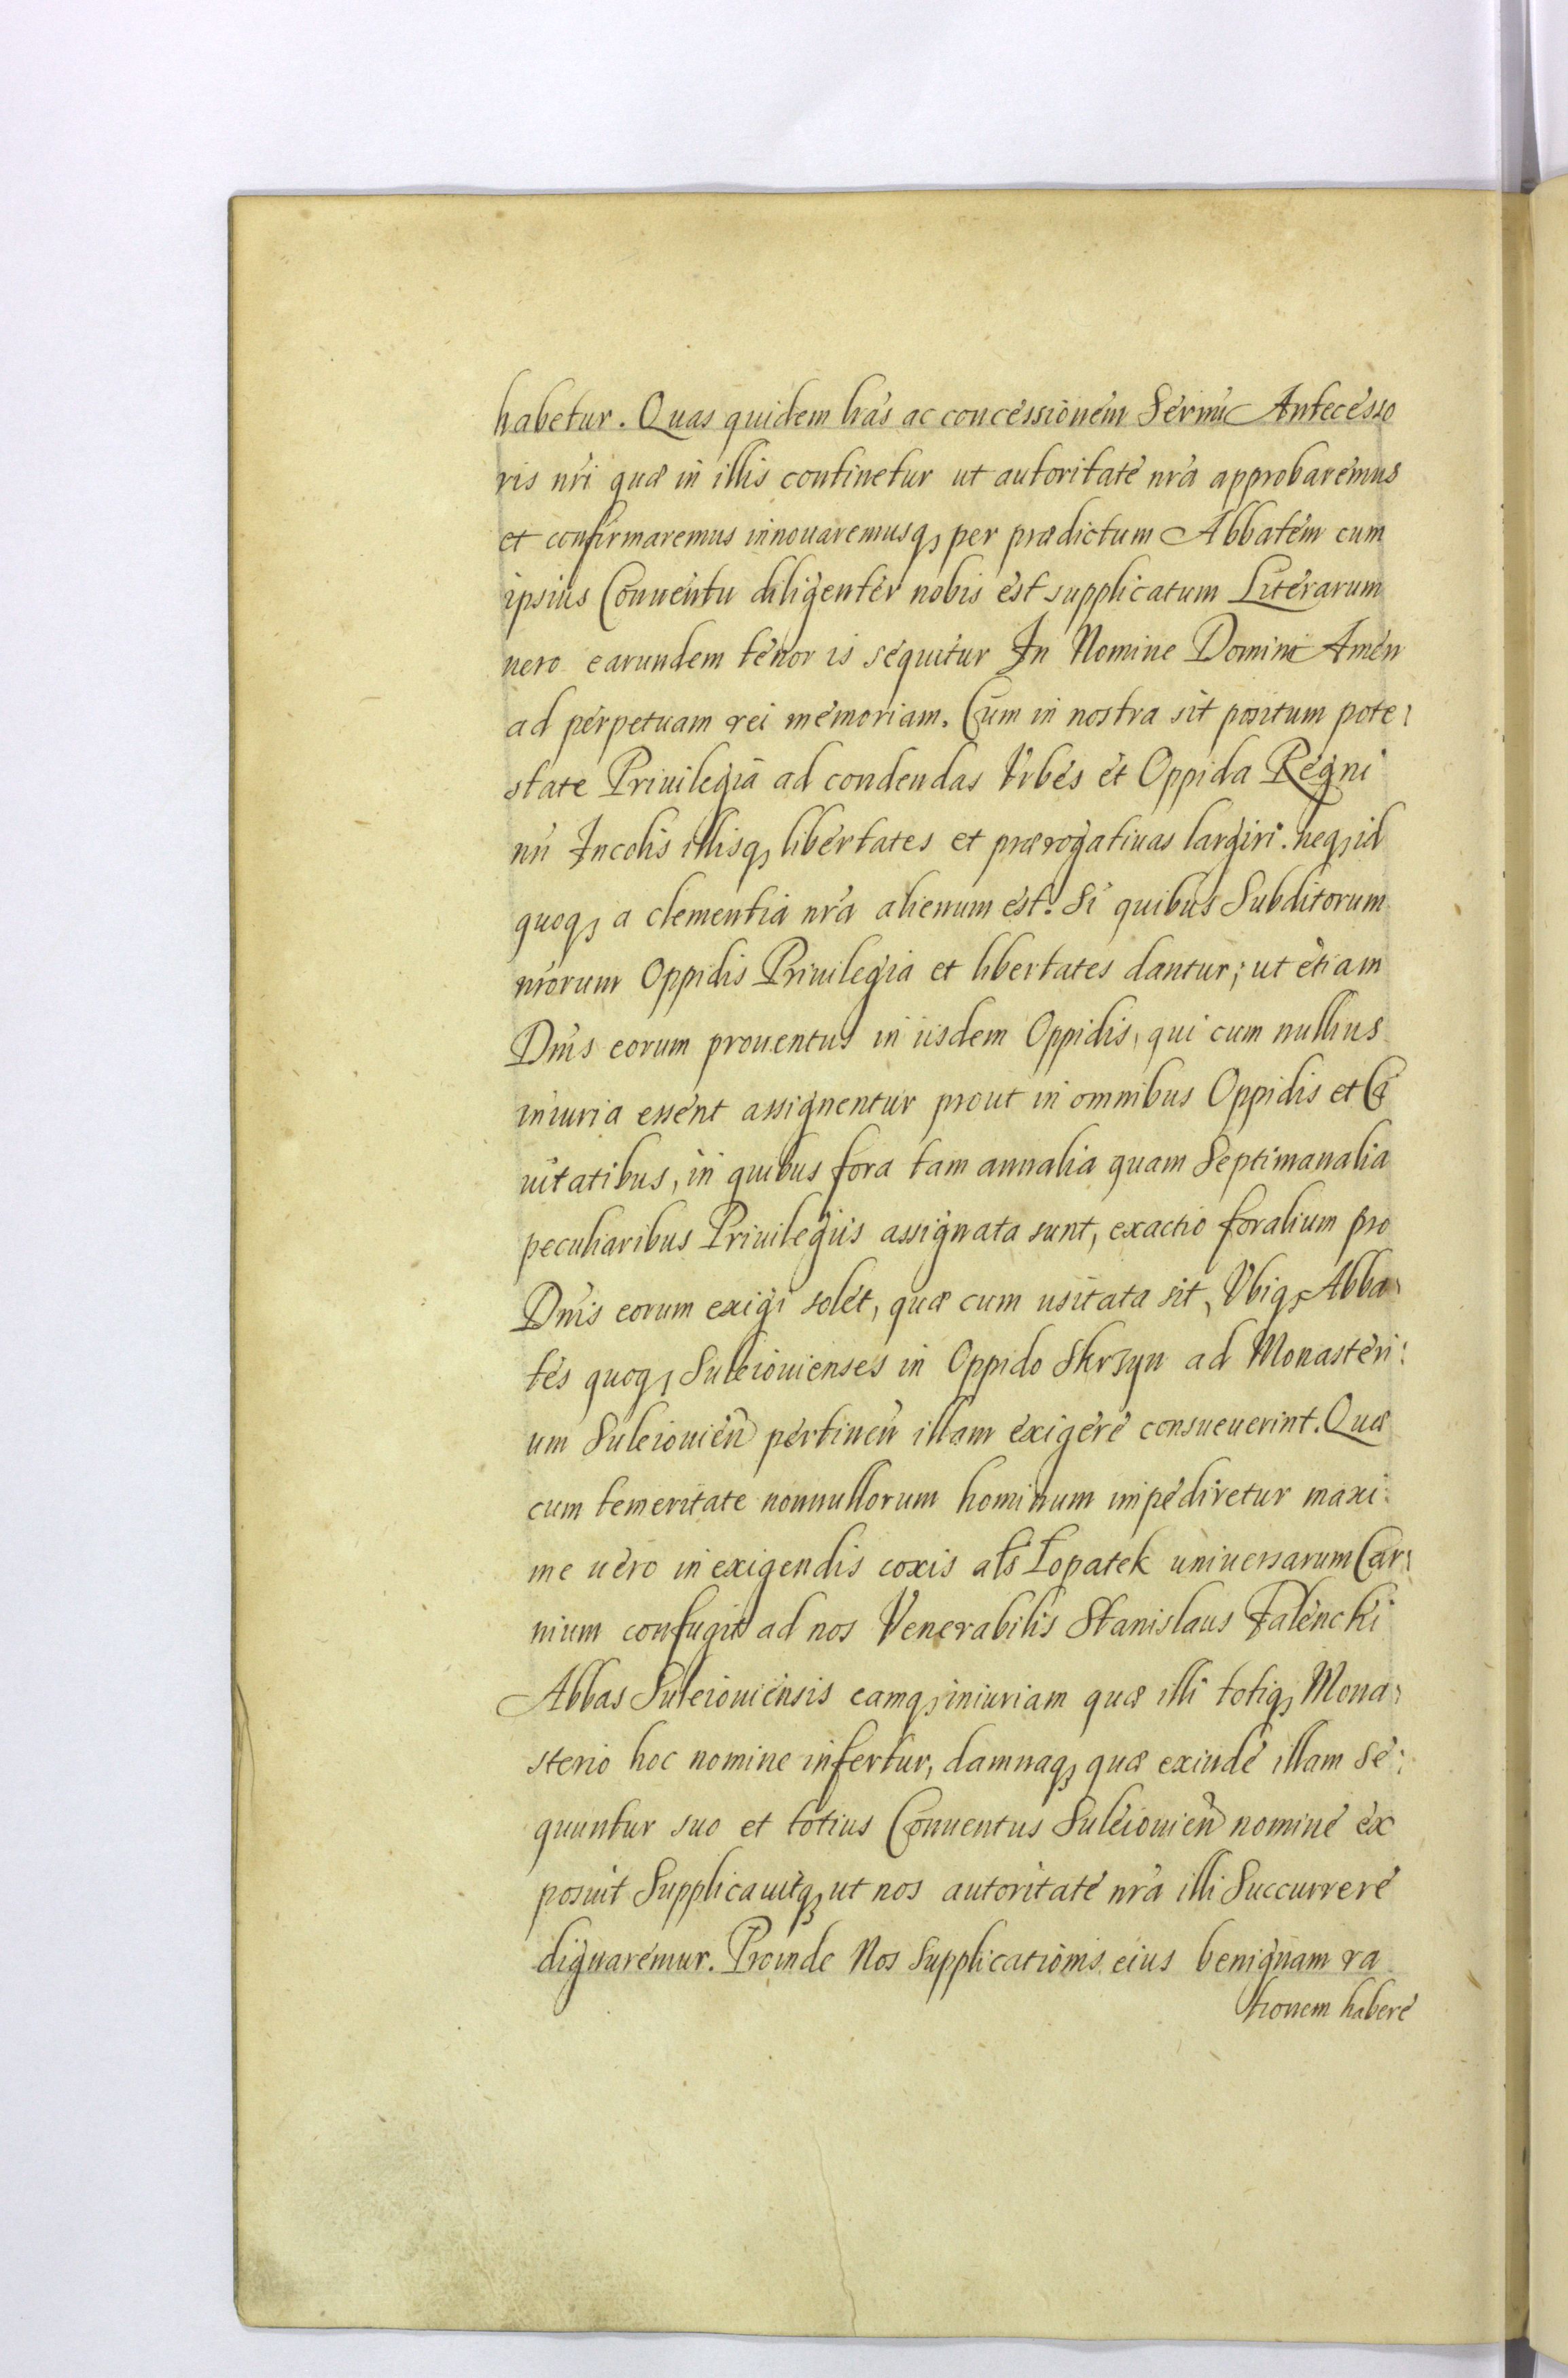 habetur. Quas quidem lrás ac concessionem Sermi Antecesso
ris nri quæ in illis continetur ut autoritate nra approbaremus
et confirmaremus innouaremusq, per prædictum Abbatem cum
ipsius Conuentu diligenter nobis est supplicatum Literarum
uero earundem tenor is sequitur In Nomine Domini Amen
ad perpetuam rei memoriam. Cum in nostra sit positum pote:
state Priuilegia ad condendas Vrbes et Oppida Regni
nri Incolis illisq, libertates et prærogatiuas largiri. neq, id
quoq, a clementia nra alienum est. Si quibus Subditorum
nrorum Oppidis Priuilegia et libertates dantur; ut etiam
Dnis eorum prouentus in iisdem Oppidis, qui cum nullius
iniuria essent assignentur prout in omnibus Oppidis et Ci
uitatibus, in quibus fora tam annalia quam Septimanalia
peculiaribus Priuilegiis assignata sunt, exactio foralium pro
Dnis eorum exigi solet, quæ cum usitata sit, Vbiq, Abba:
tes quoq, Suleiouienses in Oppido Skrzyn ad Monasteri:
um Suleiouien pertinen illam exigere consueuerint. Quæ
cum temeritate nonnullorum hominum impediretur maxi:
me uero in exigendis coxis als Łopatek uniuersarum Car:
nium confugit ad nos Venerabilis Stanislaus Falencki
Abbas Suleiouiensis eamq, iniuriam quæ illi totiq, Mona:
sterio hoc nomine infertur, damnaq, quæ exinde illam se:
quuntur suo et totius Conuentus Suleiouien nomine ex
posuit Supplicauitq, ut nos autoritate nra illi Succurrere
dignaremur. Proinde Nos Supplicationis eius benignam ra
tionem habere